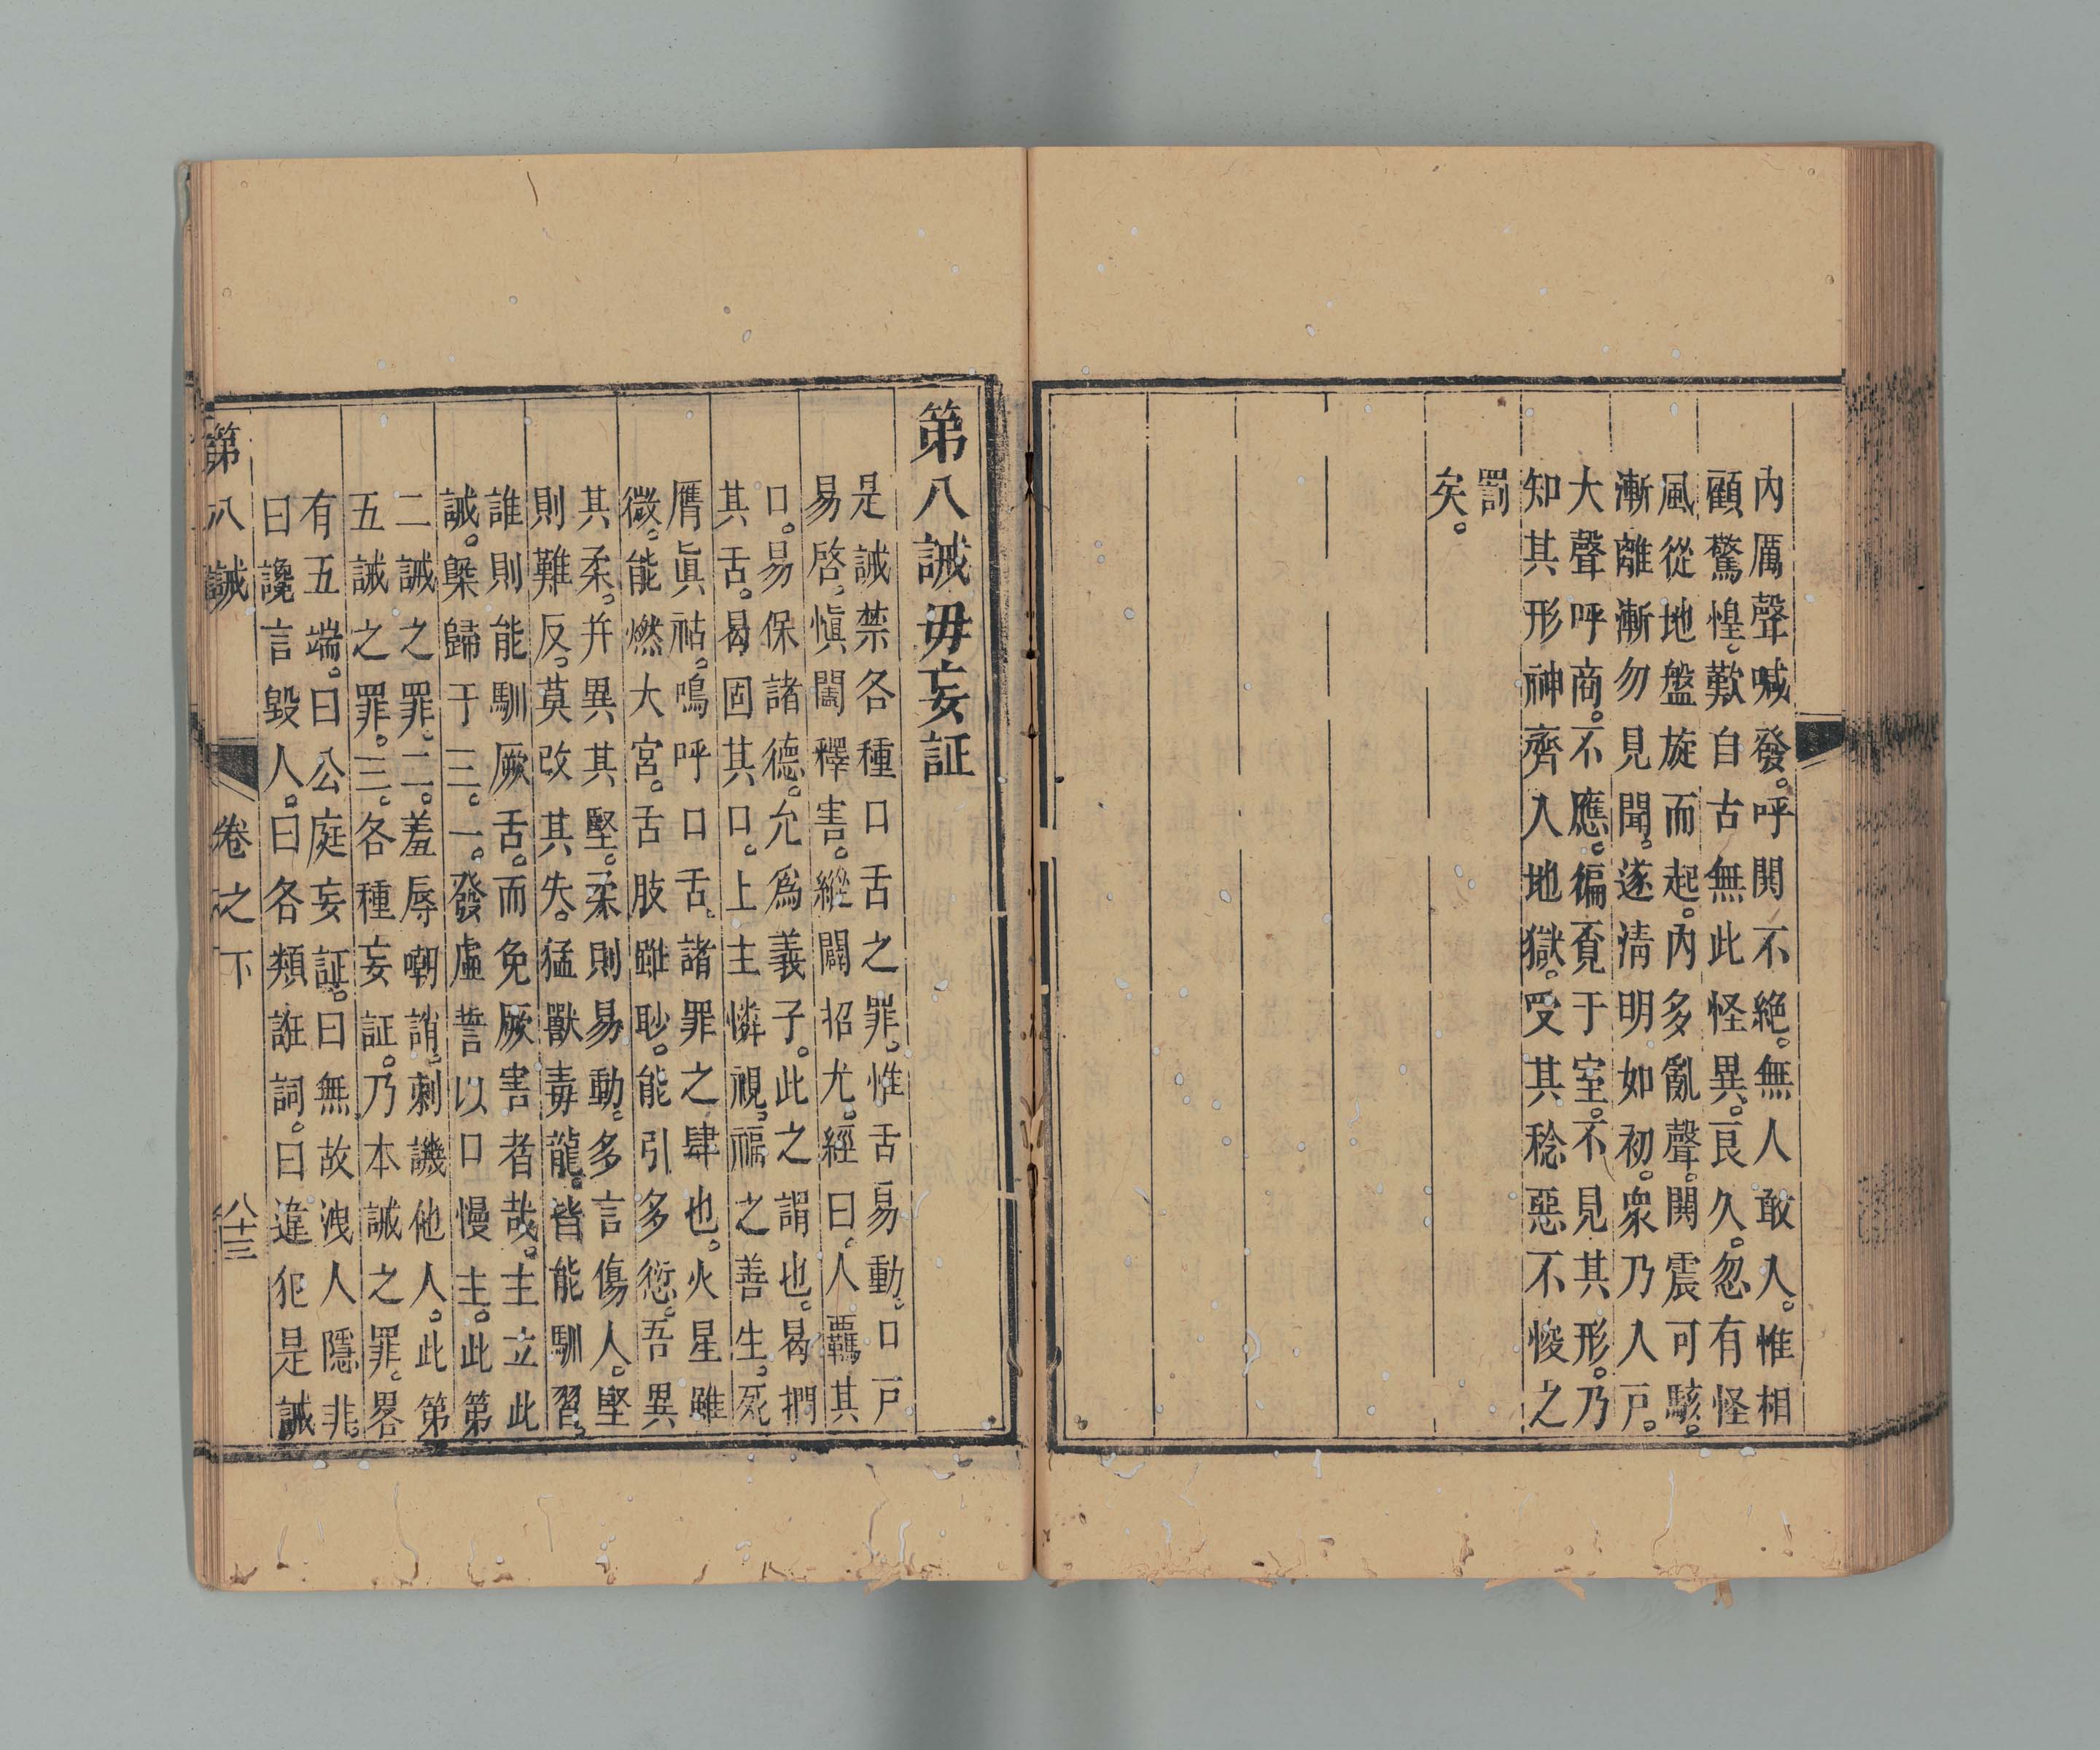 內厲聲喊發。呼閧不絕。無人敢入。惟相
顧驚惶。歎自古無此怪異。良久。忽有怪
風從地盤旋而起。內多亂聲。閧震可駭。
漸離漸勿見聞。遂淸明如初。衆乃入戸。
大聲呼商。不應。徧覔于室。不見其形。乃
知其形神齊入地獄。受其稔惡不悛之
罰
矣。
第八誡毋妄証
是誡禁各種口舌之罪。惟舌易動。口戸
易啓。愼闔釋害。縱闢招尤。經曰。人羈其
口。易保諸德。允爲義子。此之謂也。曷捫
其舌。曷固其口。上主憐視。福之善生。死
膺眞祜。嗚呼口舌。諸罪之肆也。火星雖
微。能燃大宮。舌肢雖眇。能引多愆。吾異
其柔。幷異其堅。柔則易動。多言傷人。堅
則難反。莫改其失。猛獸毒龍。皆能馴習。
誰則能馴厥舌。而免厥害者哉。主立此
誡。槩歸于三。一。發虛誓以口慢主。此第
二誡之罪。二。羞辱嘲誚。刺譏他人。此第
五誡之罪。三。各種妄証。乃本誡之罪。畧
有五端。曰公庭妄証。曰無故洩人隱非。
曰讒言毀人。曰各類誑詞。曰違犯是誡
第八誡 卷之下 八十三